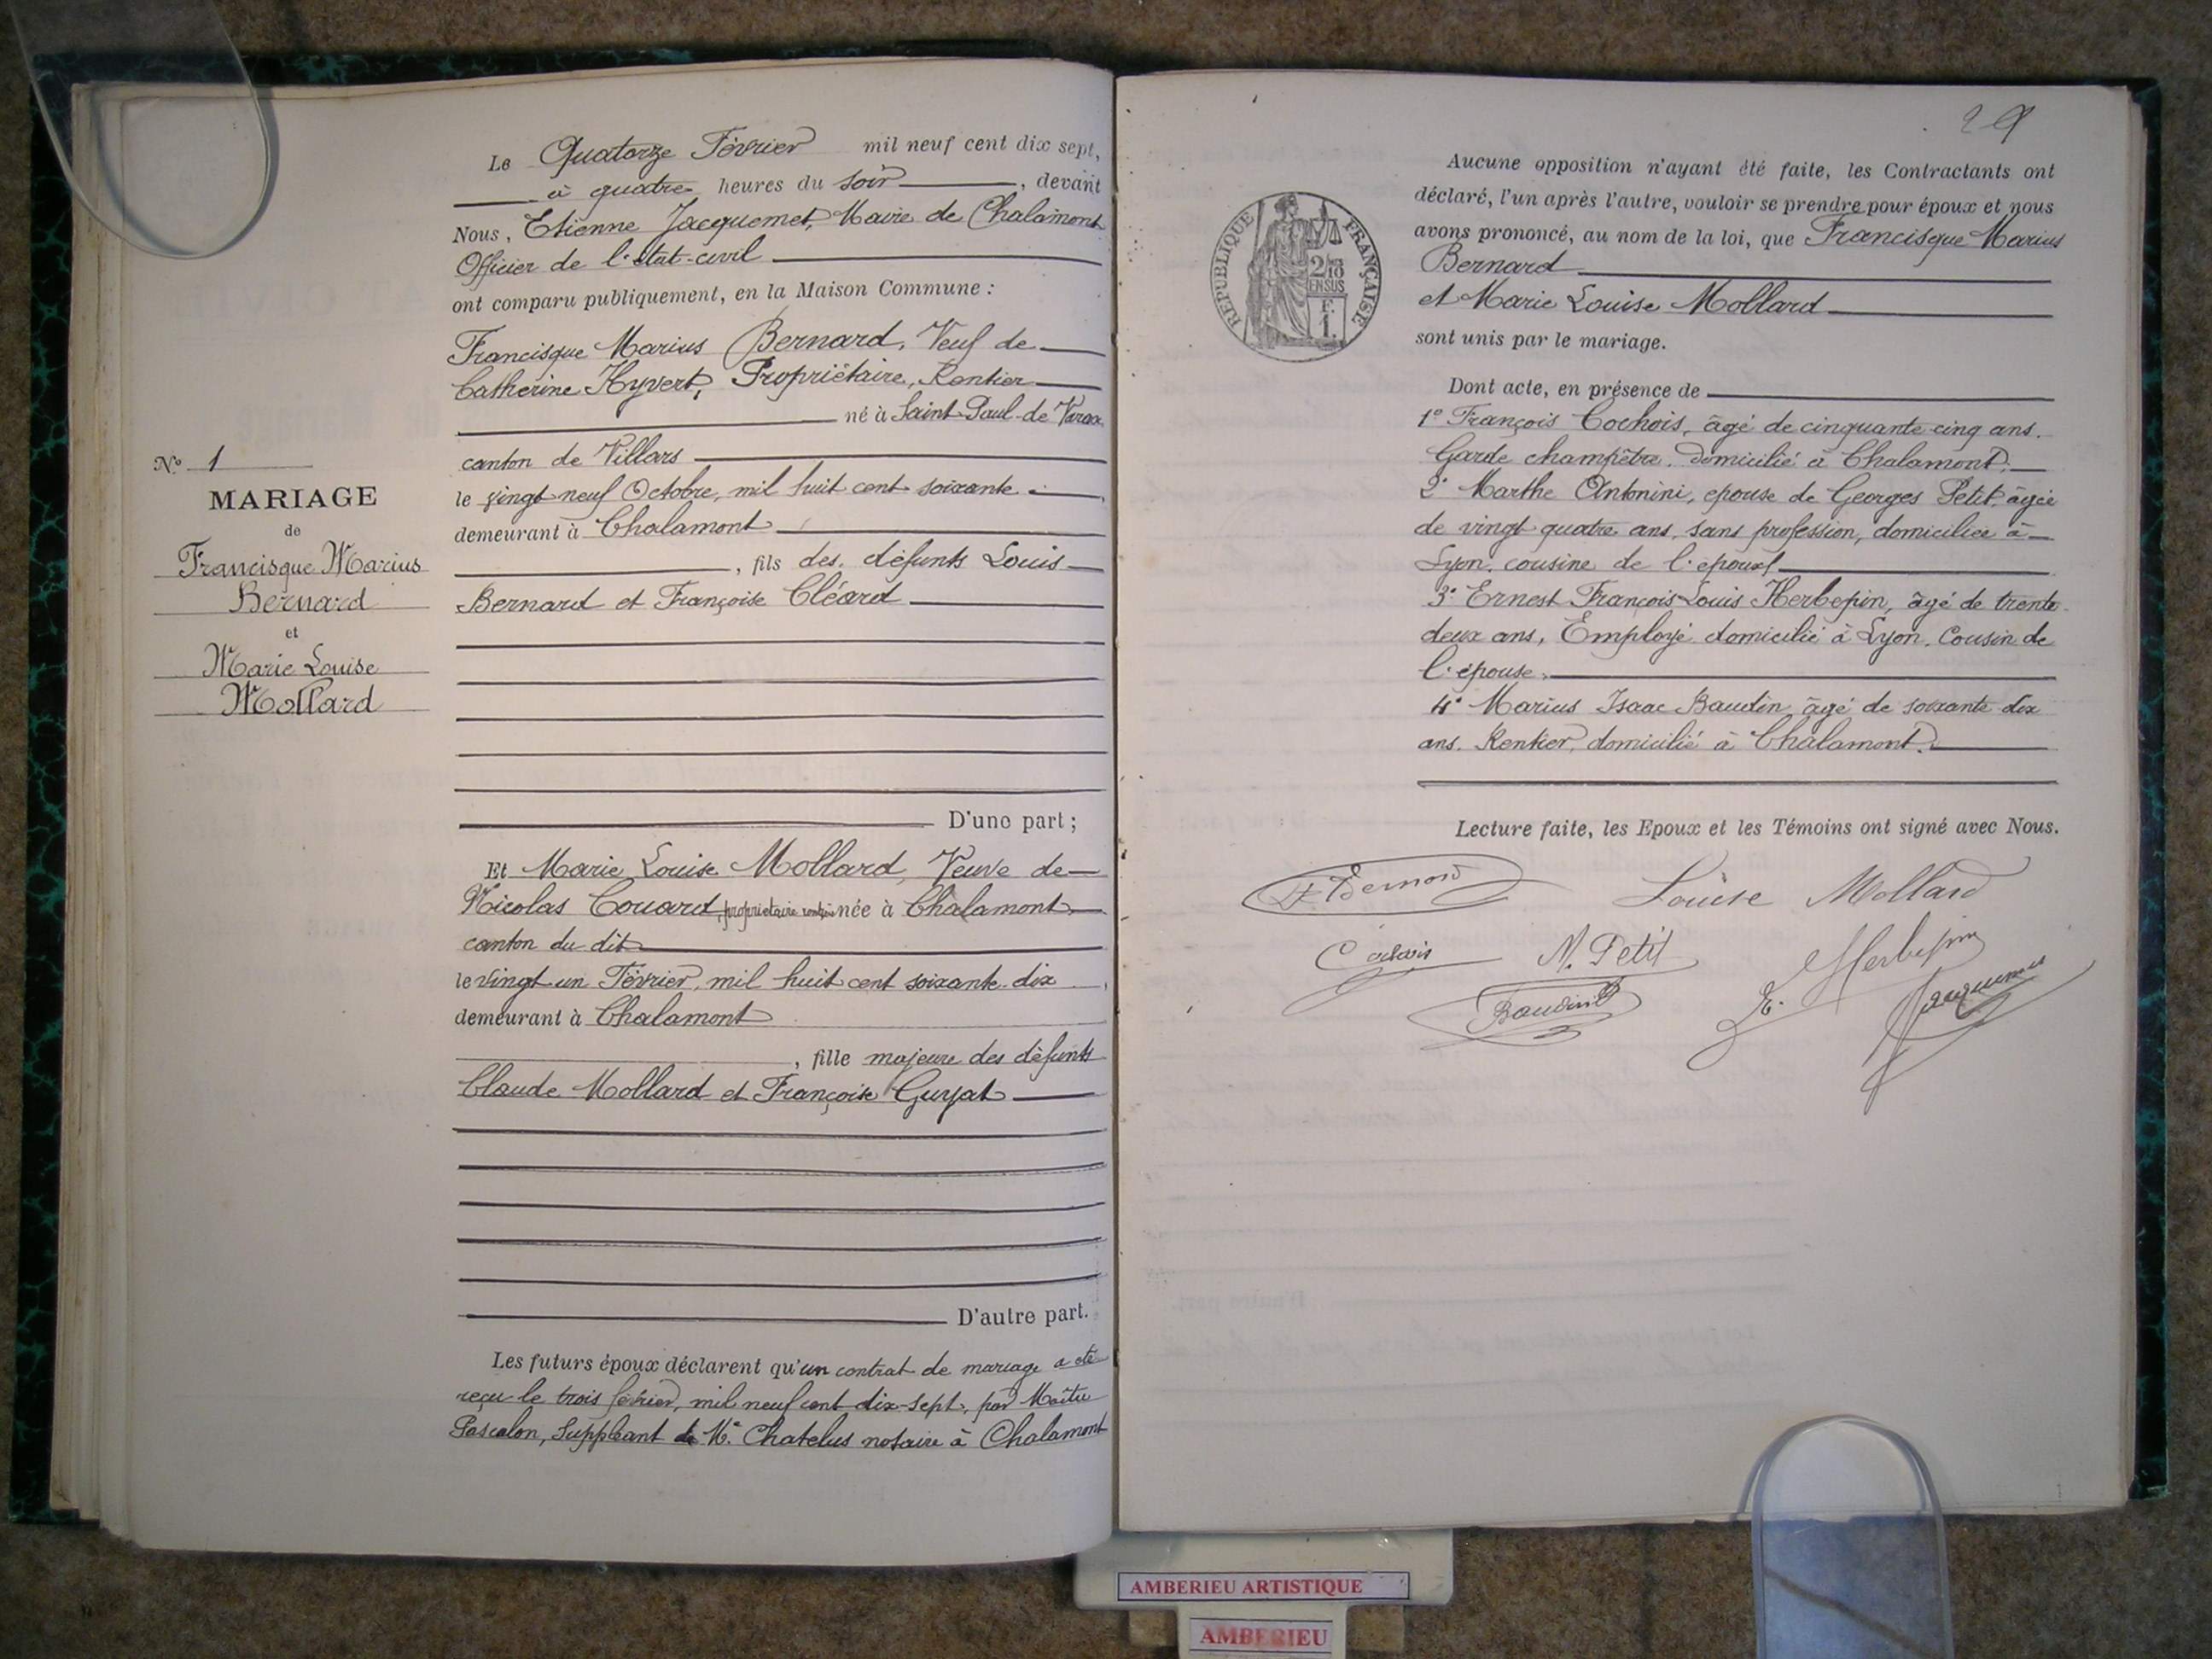 Le Quatorze Février mil neuf cent dix sept,
à quatre heures du soir, devant
Nous, Etienne Jacquemet, Maire de Chalamont
Officier de l'état-civil
ont comparu publiquement, en la Maison Commune :
Francisque Marius Bernard, Veuf de
Catherine Hyvert, Propriétaire, Rentier
né à Saint-Paul-de Varax
canton de Villars
le vingt neuf Octobre, mil huit cent soixante
demeurant à Chalamont
, fils des défunts Louis
Bernard et Françoise Cléard
D'une part ;
Et Marie Louise Mollard, Veuve de
Nicolas Couard, propriétaire rentière née à Chalamont
canton du dit
le vingt un Février, mil huit cent soixante-dix
demeurant à Chalamont
, fille majeure des défunts
Claude Mollard et Françoise Guyat
D'autre part.
Les futurs époux déclarent qu'un contrat de mariage a été
reçu le trois février, mil neuf cent dix-sept, par Maître
Pascalon, Suppléant de Me Chatelus notaire à Chalamont
N° 1
MARIAGE
de
Francisque Marius
Bernard
et
Marie Louise
Mollard
29
Aucune opposition n'ayant été faite, les Contractants ont
déclaré, l'un après l'autre, vouloir se prendre pour époux et nous
avons prononcé, au nom de la loi, que Francisque Marius
Bernard
et Marie Louise Mollard
sont unis par le mariage.
Dont acte, en présence de
1° François Cochois, âgé de cinquante-cinq ans.
Garde champêtre. domicilié à Chalamont.
2° Marthe Antonini, epouse de Georges Petit, âgée
de vingt quatre ans, sans profession, domiciliée à
Lyon, cousine de l'époux
3° Ernest François Louis Herbepin, âgé de trente
deux ans, Employé domicilié à Lyon. Cousin de
l'épouse.
4° Marius Isaac Baudin âgé de soixante dix
ans. Rentier, domicilié à Chalamont.
Lecture faite, les Epoux et les Témoins ont signé avec Nous.
Bernard Louise Mollard
Cochois M. Petit E. Herbepin
Baudin Jacquemet
REPUBLIQUE FRANÇAISE
2/10
EN SUS
F.
1.
AMBERIEU ARTISTIQUE
AMBERIEU